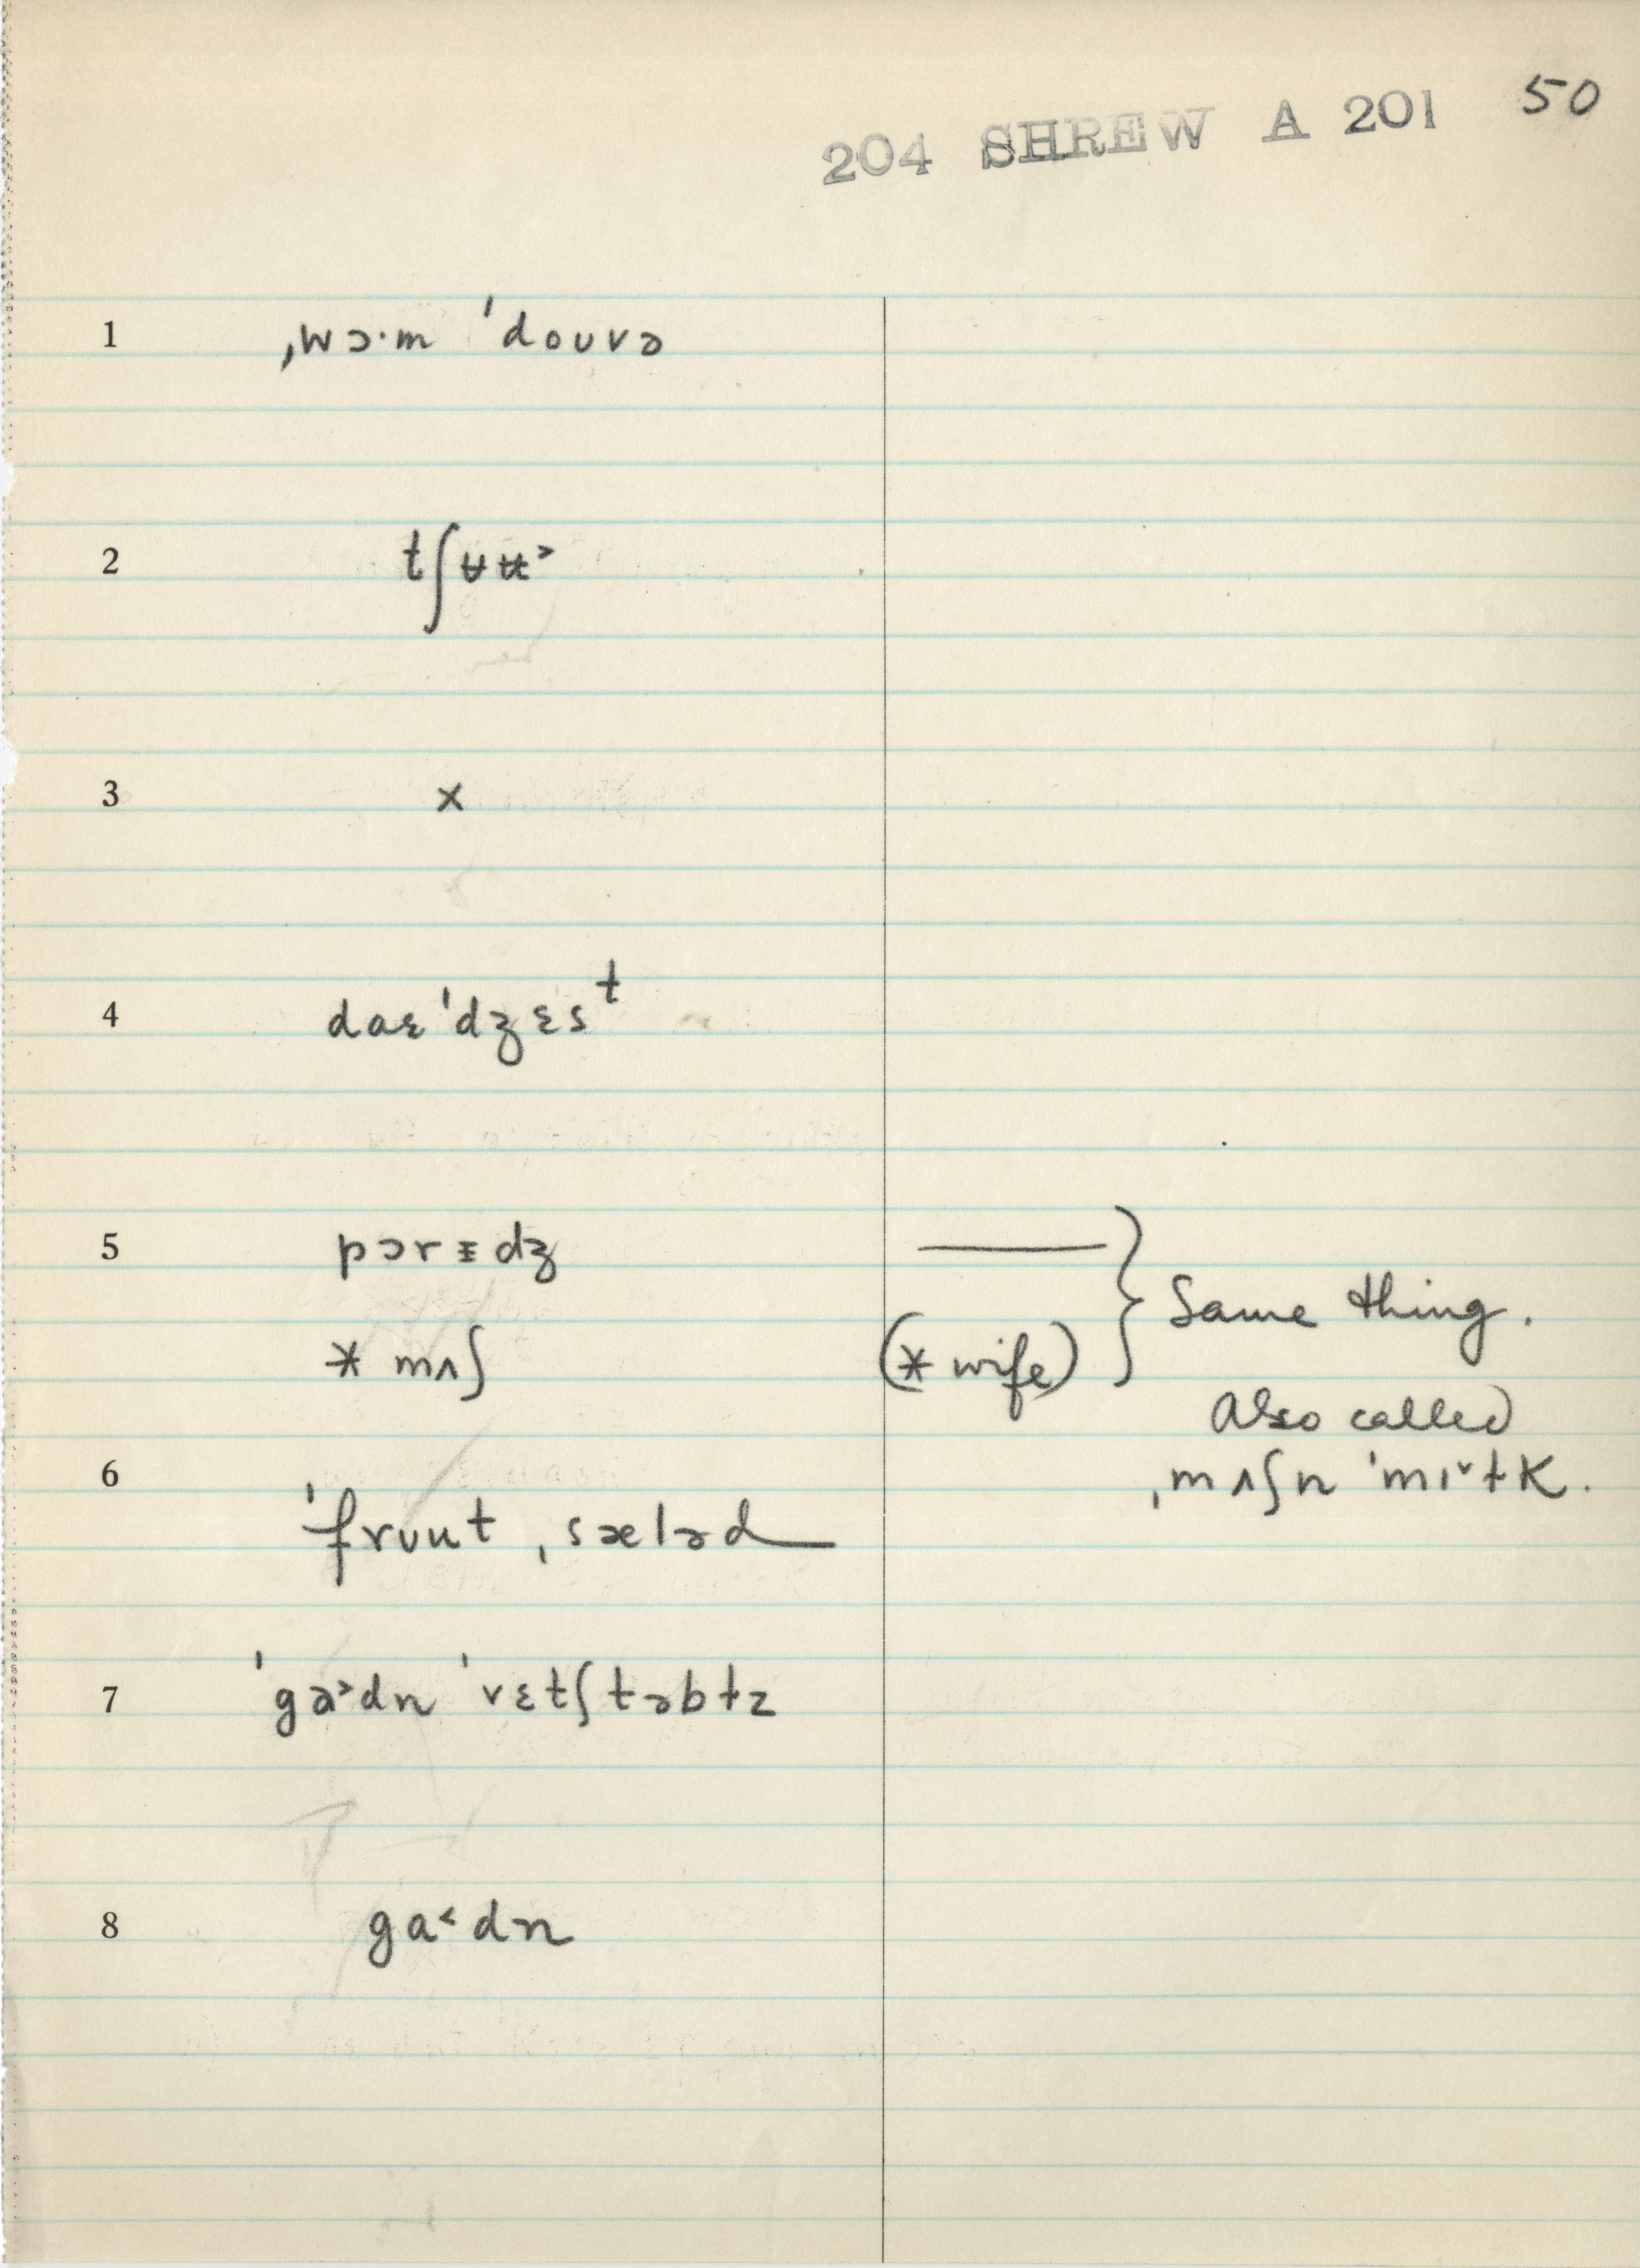 50
204 SHREW A 201
1 ˌwɔ·m ˈdoʊvə
2 tʃʉʉ˃
3 x
4 daɛ ˈdʒɛsᵗ
5 pɔrɪ̵dʒ
* mʌʃ
(* wife)
} Same thing.
Also called
ˌmʌʃn ˈmɪ˅ɫk.
6 ˈfrʊut ˌsæləd
7 ˈga˃dn ˈvɛtʃtəbɫz
8 ga˂dn